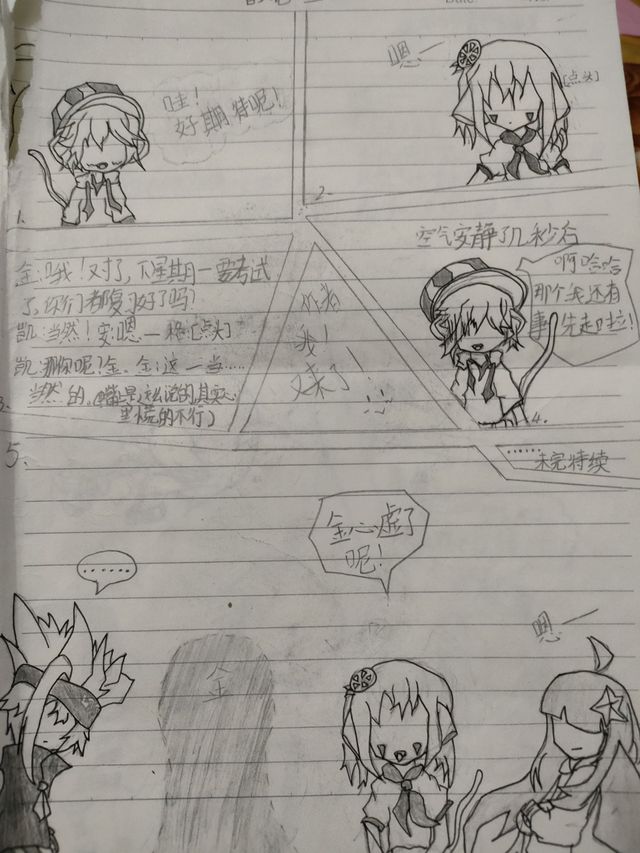 1.
哇！
好期待呢！
2.
嗯一
[点头]
金：哦！对了，下星期一要考试
了，你们都复习好了吗？
凯：当然！安：嗯一 格：[点头]
凯：那你呢？金。金：这一当……
当然的。(嘴上是这么说的，其实心
里慌的不行)
3.
我！
又来了！
空气安静了几秒后
啊哈哈
那个我还有
事，先走啦！
4.
……未完待续
5.
金心虚了
呢！
……
金
嗯一